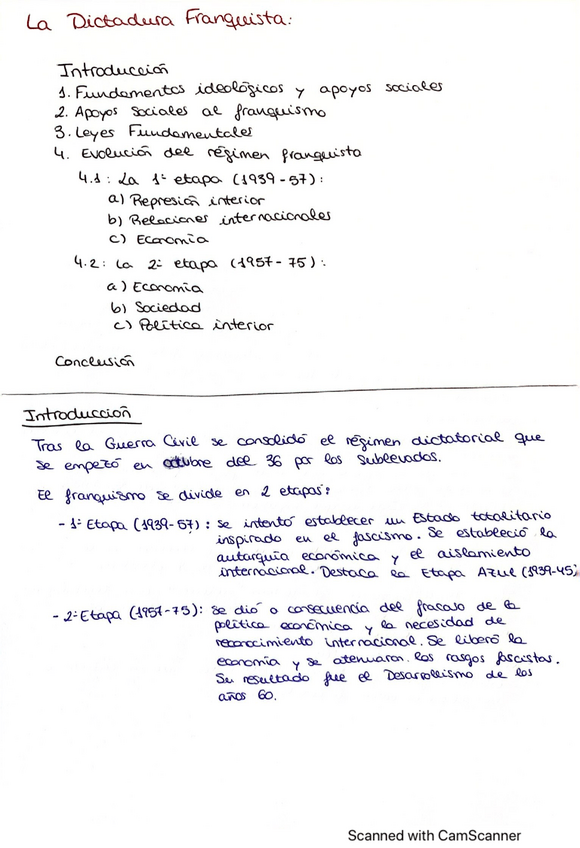 La Dictadura Franquista:
Introducción
1. Fundamentos ideológicos y apoyos sociales
2. Apoyos sociales al franquismo
3. Leyes Fundamentales
4. Evolución del régimen franquista
4.1: La 1ª etapa (1939-57):
a) Represión interior
b) Relaciones internacionales
c) Economía
4.2: La 2ª etapa (1957-75):
a) Economía
b) Sociedad
c) Política interior
Conclusión
Introducción
Tras la Guerra Civil se consolidó el régimen dictatorial que
se empezó en octubre del 36 por los sublevados.
El franquismo se divide en 2 etapas:
- 1ª Etapa (1939-57): Se intentó establecer un Estado totalitario
inspirado en el fascismo. Se estableció la
autarquía económica y el aislamiento
internacional. Destaca la Etapa Azul (1939-45)
- 2ª Etapa (1957-75): Se dió a consecuencia del fracaso de la
política económica y la necesidad de
reconocimiento internacional. Se liberó la
economía y se atenuaron los rasgos fascistas.
Su resultado fue el Desarrollismo de los
años 60.
Scanned with CamScanner